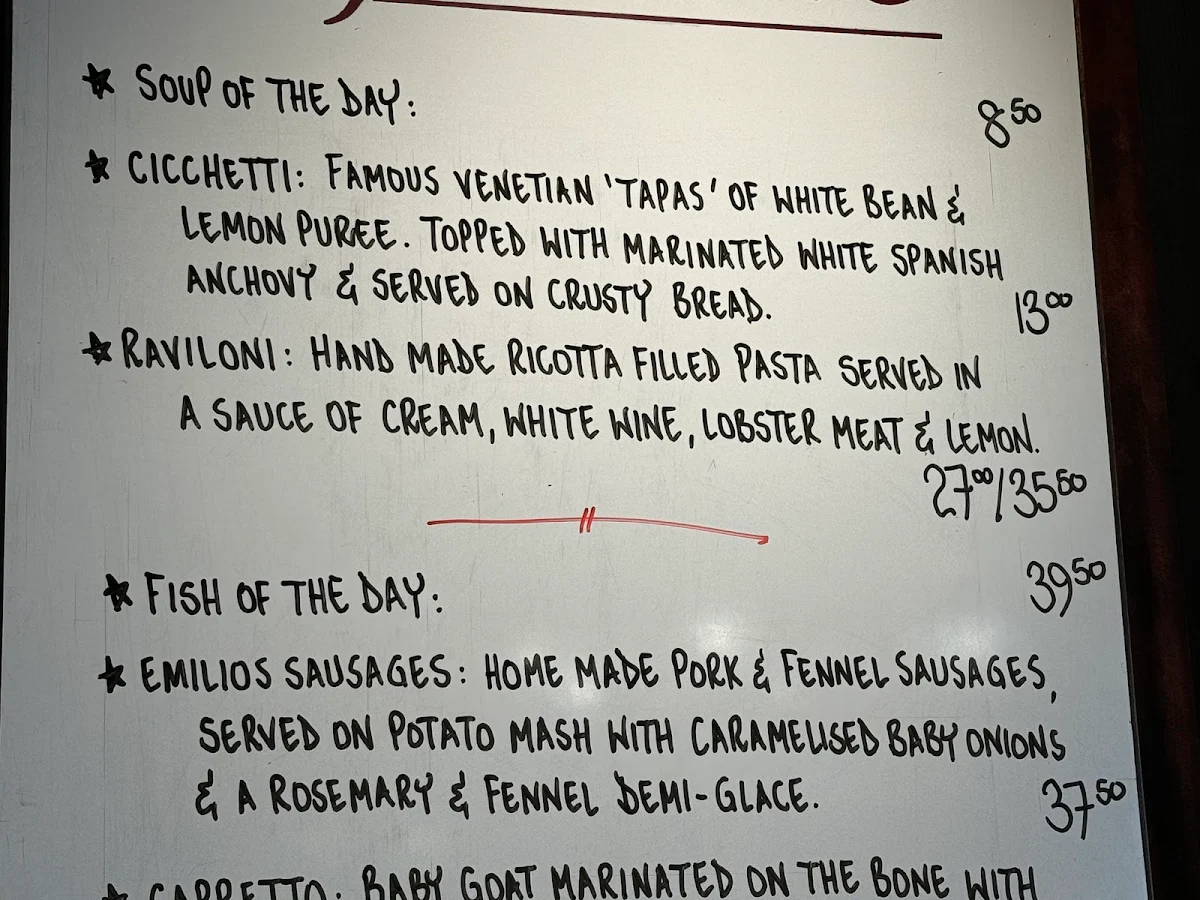 ★ SOUP OF THE DAY: 8⁵⁰
★ CICCHETTI: FAMOUS VENETIAN 'TAPAS' OF WHITE BEAN &
LEMON PUREE. TOPPED WITH MARINATED WHITE SPANISH
ANCHOVY & SERVED ON CRUSTY BREAD.
13⁰⁰
★ RAVILONI: HAND MADE RICOTTA FILLED PASTA SERVED IN
A SAUCE OF CREAM, WHITE WINE, LOBSTER MEAT & LEMON.
27⁰⁰/35⁵⁰
★ FISH OF THE DAY: 39⁵⁰
★ EMILIOS SAUSAGES: HOME MADE PORK & FENNEL SAUSAGES,
SERVED ON POTATO MASH WITH CARAMELISED BABY ONIONS
& A ROSEMARY & FENNEL DEMI-GLACE.
37⁵⁰
★ CAPRETTO: BABY GOAT MARINATED ON THE BONE WITH